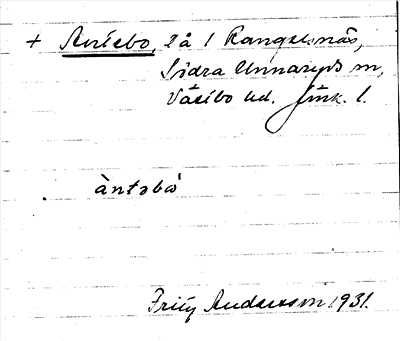 + Antebo, lå 1 Rangersnäs,
Södra Unnaryds sn,
Västbo hd. Jönk. l.
àntəbω
Fritz Andersson 1931.